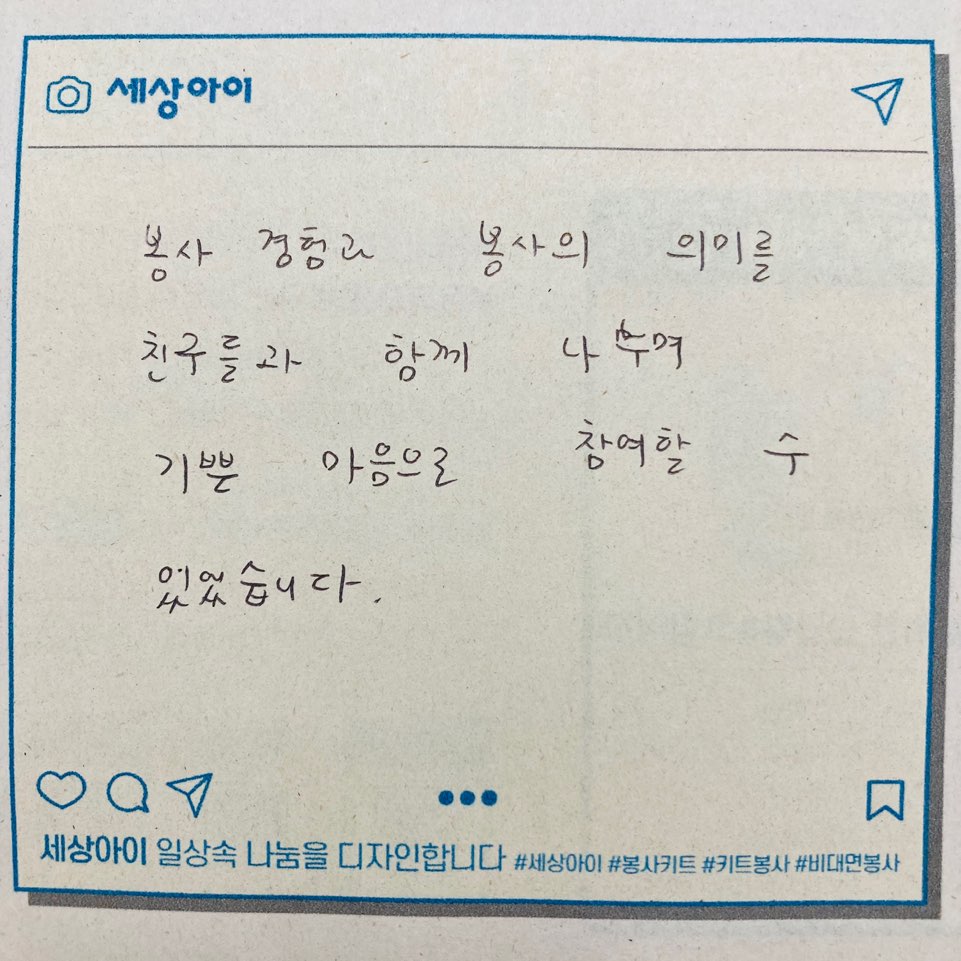 세상아이
봉사 경험과 봉사의 의미를
친구들과 함께 나누며
기쁜 마음으로 참여할 수
있었습니다.
세상아이 일상속 나눔을 디자인합니다 #세상아이 #봉사키트 #키트봉사 #비대면봉사